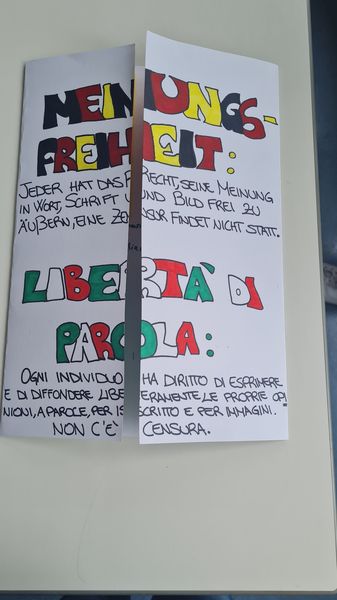 MEINUNGS-
FREIHEIT:
JEDER HAT DAS RECHT, SEINE MEINUNG
IN WORT, SCHRIFT UND BILD FREI ZU
ÄUßERN, EINE ZENSUR FINDET NICHT STATT.
LIBERTÀ DI
PAROLA:
OGNI INDIVIDUO HA DIRITTO DI ESPRIMERE
E DI DIFFONDERE LIBERAMENTE LE PROPRIE OPI
NIONI, A PAROLE, PER ISCRITTO E PER IMMAGINI.
NON C'È CENSURA.